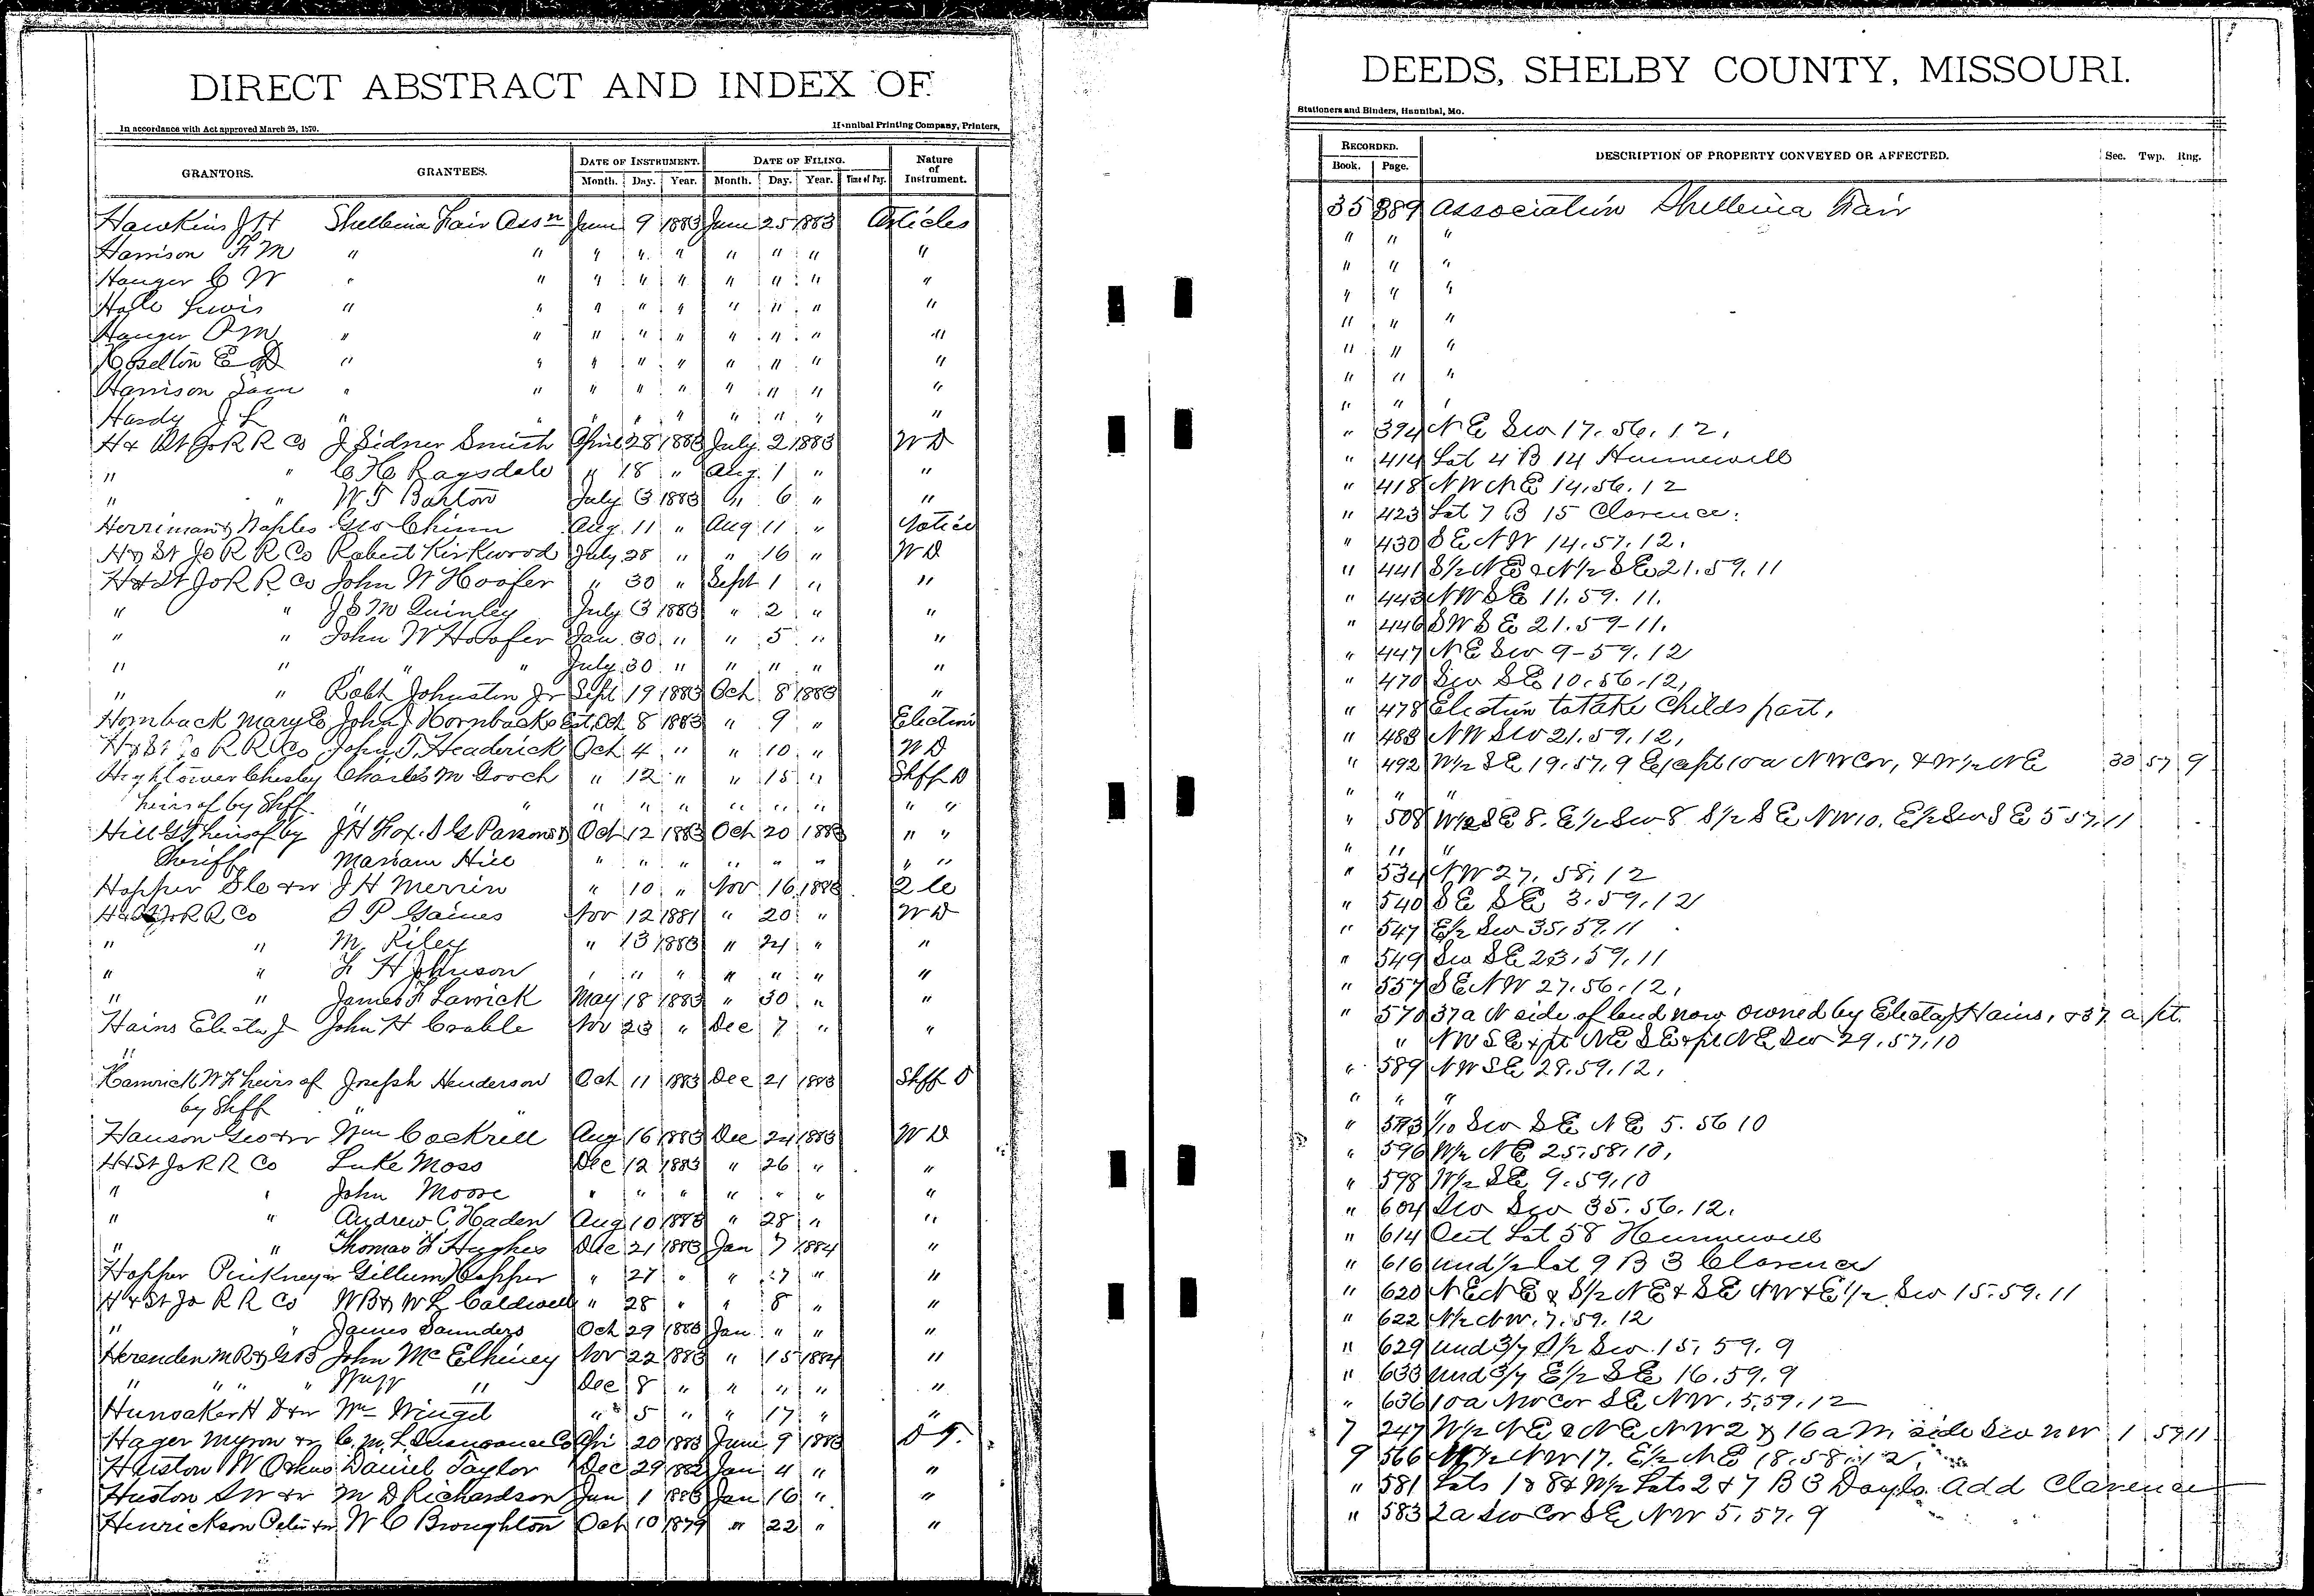 DIRECT ABSTRACT AND INDEX OF
In accordance with Act approved March 25, 1870. Hannibal Printing Company, Printers,
GRANTORS. GRANTEES. DATE OF INSTRUMENT. DATE OF FILING. Nature of Instrument.
Month. Day. Year. Month. Day. Year. Time of Day.
Hawkins J H Shelbina Fair Assn June 9 1883 June 25 1883 Articles
Harrison F M " " " " " " " " "
Hanger C W " " " " " " " " "
Hale Lewis " " " " " " " " "
Hanger P M " " " " " " " " "
Hoselton E D " " " " " " " " "
Harrison Sam " " " " " " " " "
Hardy J L " " " " " " " " "
H & St Jo R R Co J Sidner Smith April 28 1883 July 2 1883 W D
" " C H Ragsdale " 18 " Aug. 1 " "
" " W T Barton July 3 1883 " 6 " "
Herriman & Waples Geo Chinn Aug. 11 " Aug 11 " Notice
H & St Jo R R Co Robert Kirkwood July 28 " " 16 " W D
H & St Jo R R Co John W Hoofer " 30 " Sept 1 " "
" " J S McQuinley July 3 1883 " 2 " "
" " John W Hoofer Jan. 30 " " 5 " "
" " " " " July 30 " " " " "
" " Robt Johnston Jr Sept 19 1883 Oct 8 1883 "
Hornback Mary E John J Hornbacks Est. Oct 8 1883 " 9 " Election
H & St Jo R R Co John T. Headerick Oct 4 " " 10 " W D
Hightower Chesley Charles M Gooch " 12 " " 15 " Shff D
heirs of by Shff " " " " " " " " " "
Hill G T heirs of by J H Fox. S G Parsons & Oct 12 1883 Oct 20 1883 " "
Sheriff Mariam Hill " " " " " " " "
Hopper S C & w J H Merrin " 10 " Nov 16 1883 Q C
H & St Jo R R Co S P Gaines Nov 12 1881 " 20 " W D
" " M. Riley " 13 1883 " 24 " "
" " F H Johnson " " " " " " "
" " James F Larrick May 18 1883 " 30 " "
Hains Electa J John H Coable Nov 23 " Dec 7 " "
"
Hamrick W F heirs of Joseph Henderson Oct 11 1883 Dec 21 1883 Shff D
by Shff " "
Hanson Geo & w Wm Cockrill Aug 16 1883 Dec 24 1883 W D
H & St Jo R R Co Luke Moss Dec 12 1883 " 26 " "
" " John Moore " " " " " " "
" " Andrew C Haden Aug 10 1883 " 28 " "
" " Thomas F Hughes Dec 21 1883 Jan 7 1884 "
Hopper Pinkney & w Gillum Hopper " 27 " " 7 " "
H & St Jo R R Co W B & W L Caldwell " 28 " " 8 " "
" " James Saunders Oct 29 1883 Jan " " "
Herenden M R & G B John McElhiney Nov 22 1883 " 15 1884 "
" " " " " Dec 8 " " " " "
Hunsaker H D & w Wm Wingel " 5 " " 17 " "
Hager Myron & w C. M. L. Insurance Co Apr 20 1883 June 9 1883 D T.
Huston W Daniel Taylor Dec 29 1882 Jan 4 " "
Huston S W & w M D Richardson Jan 1 1883 Jan 16 " "
Henrickson Peter & w W C Broughton Oct 10 1879 " 22 " "
DEEDS, SHELBY COUNTY, MISSOURI.
Stationers and Binders, Hannibal, Mo.
RECORDED. DESCRIPTION OF PROPERTY CONVEYED OR AFFECTED. Sec. Twp. Rng.
Book. Page.
35 389 Association Shelbina Fair
" " "
" " "
" " "
" " "
" " "
" " "
" " "
" 394 N E Sw 17. 56. 12,
" 414 Lot 4 B 14 Hunnewell
" 418 N W N E 14. 56. 12
" 423 Lot 7 B 15 Clarence.
" 430 S E N W 14. 57. 12.
" 441 S 1/2 N E & N 1/2 S E 21. 59. 11
" 443 N W S E 11. 59. 11.
" 446 S W S E 21. 59-11.
" 447 N E Sw 9-59. 12
" 470 Sw S E 10. 56. 12,
" 478 Election to take Childs part,
" 483 N W Sw 21. 59. 12,
" 492 W 1/2 S E 19. 57. 9 Except 10 a N W Cor, & W 1/2 N E 30 57 9
" " "
" 508 W 1/2 S E 8. E 1/2 Sw 8 S 1/2 S E N W 10. E 1/2 Sw S E 5 57. 11
" " "
" 534 N W 27. 58. 12
" 540 S E S E 3. 59. 12
" 547 E 1/2 Sw 35. 59. 11
" 549 Sw S E 23. 59. 11
" 557 S E N W 27. 56. 12,
" 570 37 a N side of land now owned by Electa J Hains, & 37 a pt.
" N W S E & pt N E S E & pt N E Sw 29. 57. 10
" 589 N W S E 28. 59. 12.
" " "
" 593 1/10 Sw S E N E 5. 56 10
" 596 W 1/2 N E 25. 58. 10,
" 598 W 1/2 S E 9. 59. 10
" 604 Sw Sw 35. 56. 12.
" 614 Out Lot 58 Hunnewell
" 616 und 1/2 Lot 9 B 3 Clarence
" 620 N E N E & S 1/2 N E & S E N W & E 1/2 Sw 15. 59. 11
" 622 N 1/2 N W. 7. 59. 12
" 629 und 3/7 S 1/2 Sw. 15, 59. 9
" 633 und 3/7 E 1/2 S E 16. 59. 9
" 636 10 a Nw Cor S E N W. 5. 59. 12
7 247 W 1/2 N E & N E N W 2 & 16 a N side Sw N W 1 59 11
9 566 N W 17. E 1/2 N E 18. 58. 12,
" 581 Lots 1 & 8 & W 1/2 Lots 2 & 7 B 3 Doyles Add Clarence
" 583 2 a Sw Cor S E N W 5. 57. 9